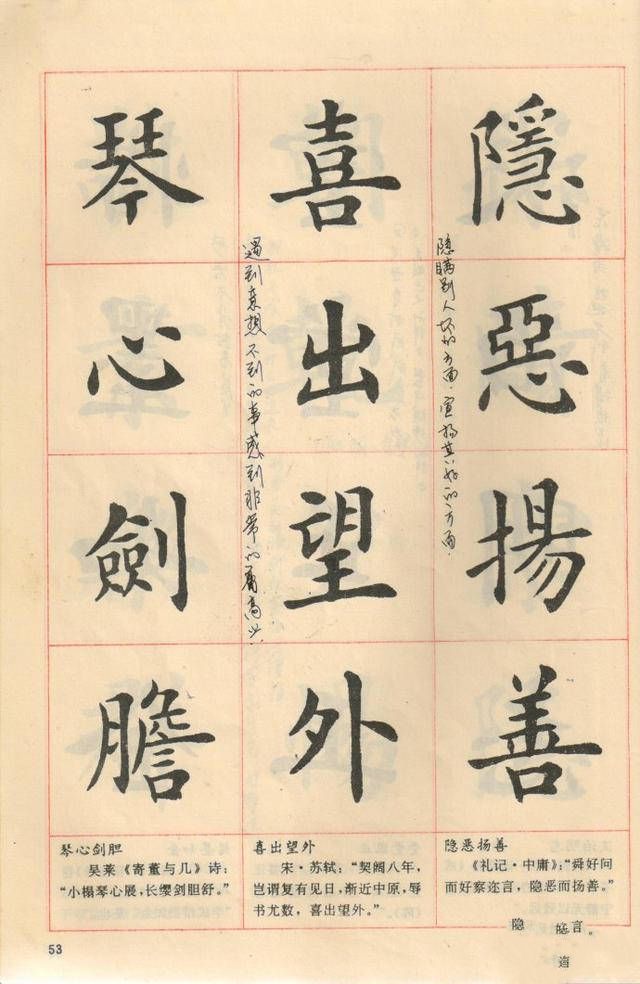 隱惡揚善
隐瞒别人坏的方面，宣扬其好的方面.
喜出望外
遇到想不到的事感到非常的高兴
琴心劍膽
隐恶扬善
《礼记·中庸》：“舜好问
而好察迩言，隐恶而扬善。”
隐 言。
喜出望外
宋·苏轼：“契阔八年，
岂谓复有见日，渐近中原，辱
书尤数，喜出望外。”
琴心剑胆
吴莱《寄董与几》诗：
“小榻琴心展，长缨剑胆舒。”
53